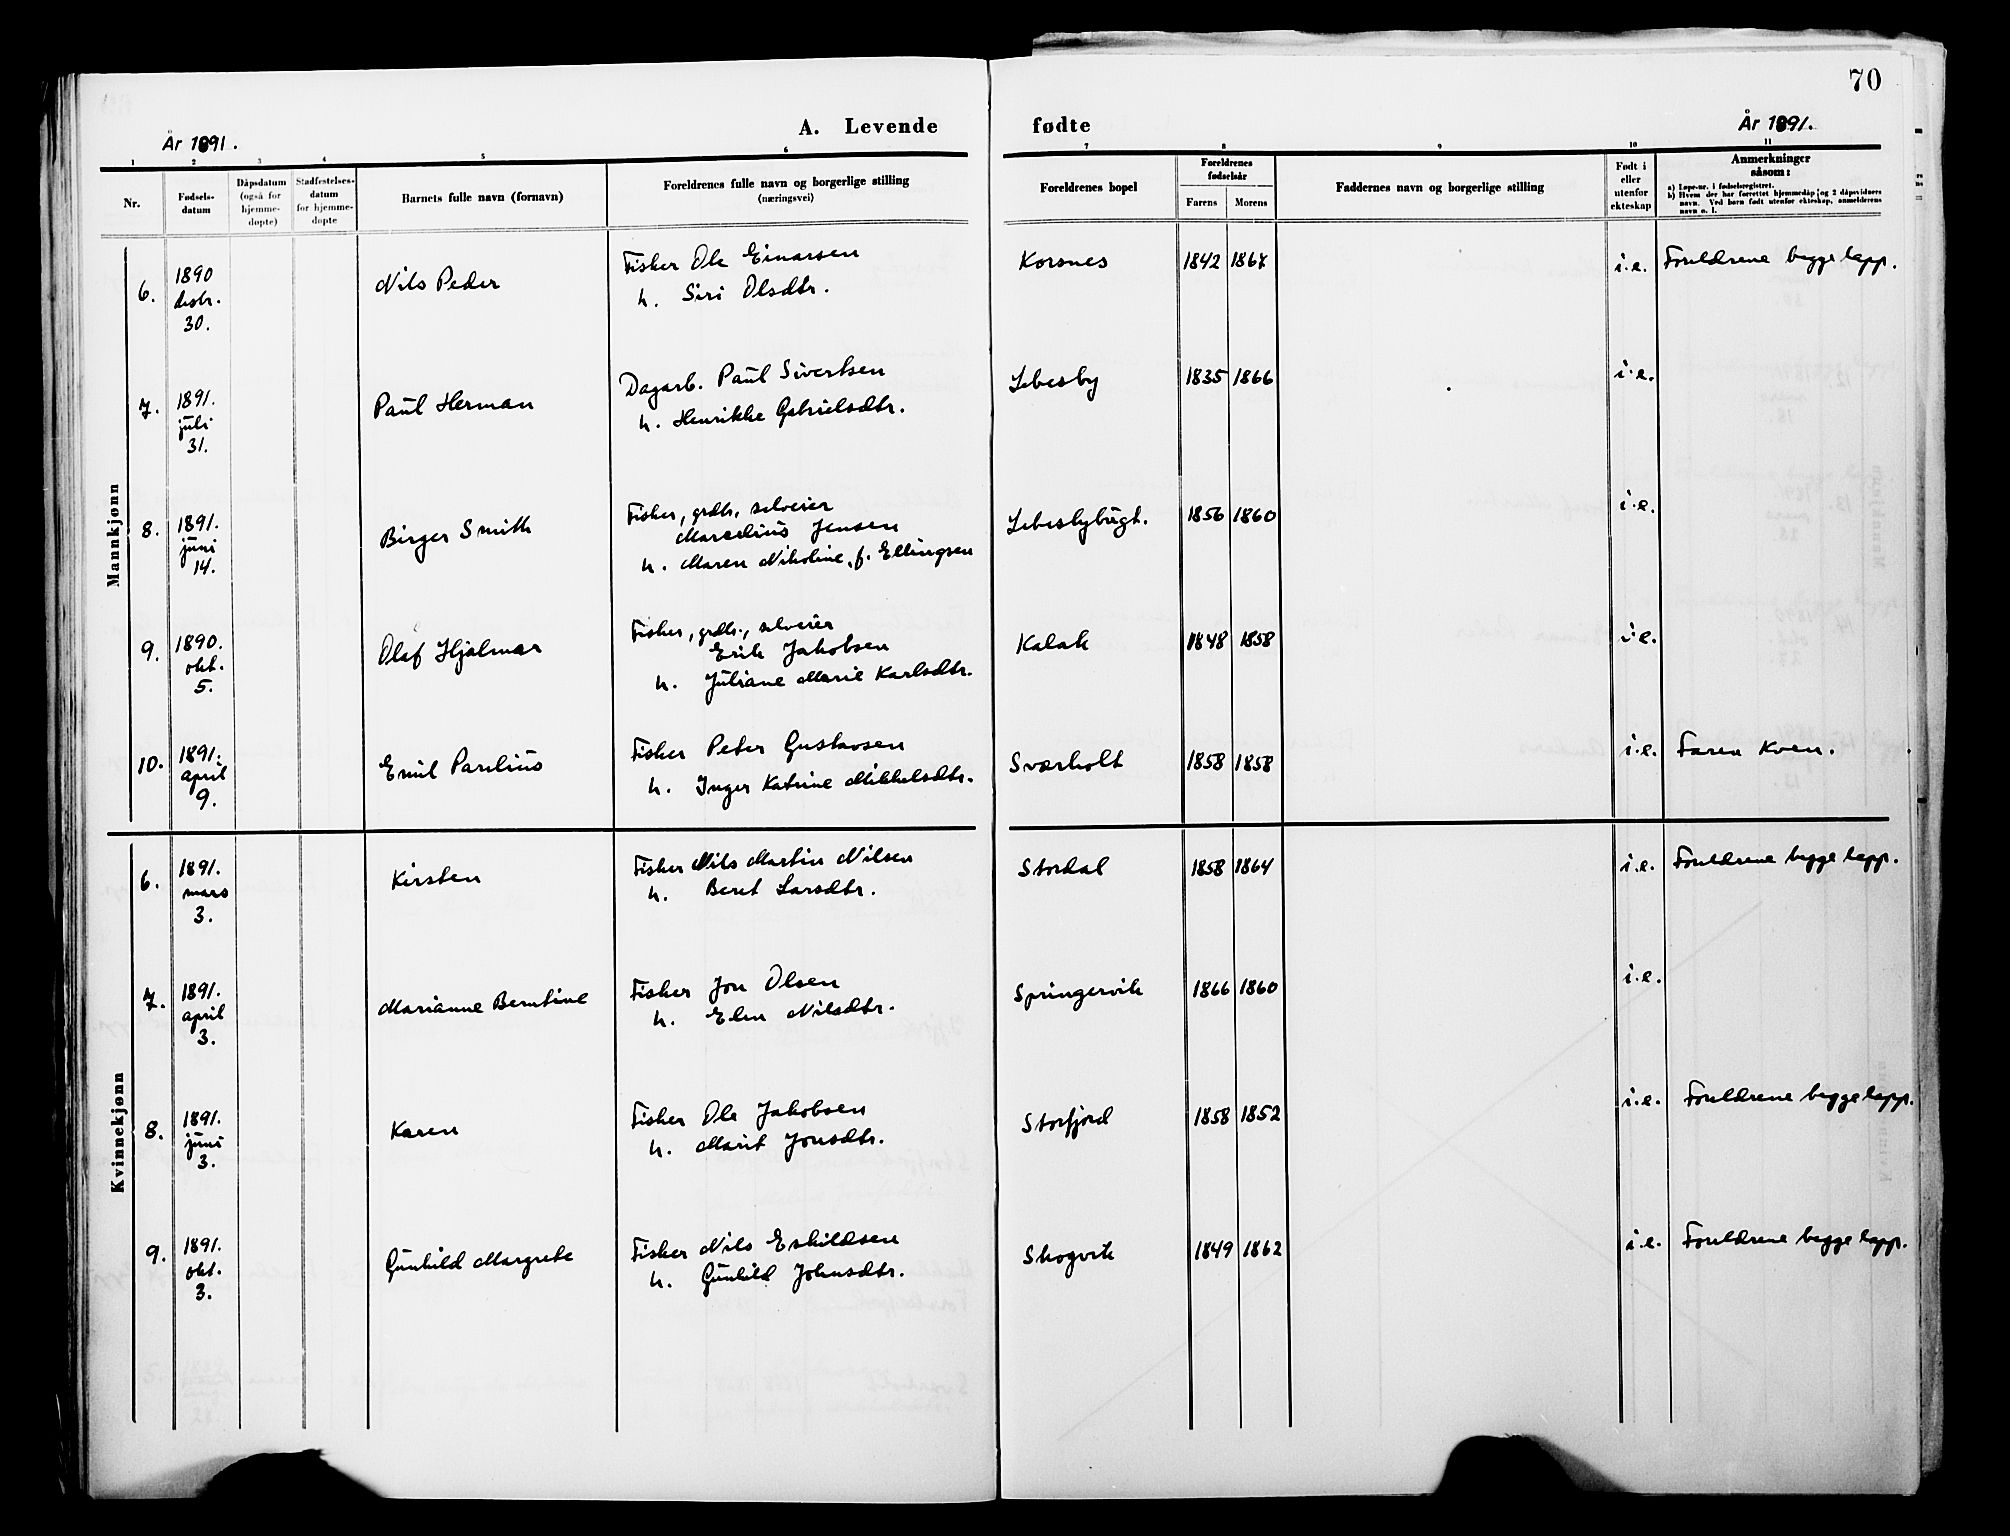 70
År 1891.
A. Levende fødte
År 1891.
1 2 3 4 5 6 7 8 9 10 11
Nr.
Fødsels-
datum
Dåpsdatum
(også for
hjemme-
døpte)
Stadfestelses-
datum
for hjemme-
døpte
Barnets fulle navn (fornavn)
Foreldrenes fulle navn og borgerlige stilling
(næringsvei)
Foreldrenes bopel
Foreldrenes
fødselsår
Farens Morens
Faddernes navn og borgerlige stilling
Født i
eller
utenfor
ekteskap
Anmerkninger
såsom:
a) Løpe-nr. i fødselsregistret.
b) Hvem der har forrettet hjemmedåp og 2 dåpsvidners
navn. Ved barn født utenfor ekteskap, anmelderens
navn o. l.
Mannkjønn
6. 1890 desbr. 30. Nils Peder
Fisker Ole Einarsen
h. Siri Olsdtr.
Korsnes 1842 1867 i.e. Foreldrene begge lapp.
7. 1891. juli 31. Paul Herman
Dagarb. Paul Sivertsen
h. Henrikke Gabrielsdtr.
Lebesby 1835 1866 i.e.
8. 1891. juni 14. Birger Smith
Fisker, grdbr., selveier
Marcelius Jensen
h. Maren Nikoline, f. Ellingsen
Lebesbybugt. 1856 1860 i.e.
9. 1890. okt. 5. Olaf Hjalmar
Fisker, grdbr., selveier
Erik Jakobsen
h. Juliane Marie Karlsdtr.
Kalak 1848 1858 i.e.
10. 1891. april 9. Emil Parelius
Fisker Peter Gustavsen
h. Inger Katrine Mikkelsdtr.
Sværholt 1858 1858 i.e. Faren Kven.
Kvinnekjønn
6. 1891. mars 3. Kirsten
Fisker Nils Martin Nilsen
h. Beret Larsdtr.
Stordal 1858 1864 i.e. Foreldrene begge lapp.
7. 1891. april 3. Marianne Berntine
Fisker Jon Olsen
h. Elen Nilsdtr.
Springervik 1866 1860 i.e.
8. 1891. juni 3. Karen
Fisker Ole Jakobsen
h. Marit Jonsdtr.
Storfjord 1858 1852 i.e. Foreldrene begge lapp.
9. 1891. okt. 3. Gunhild Margrete
Fisker Nils Eskildsen
h. Gunhild Johnsdtr.
Skogvik 1849 1862 i.e. Foreldrene begge lapp.